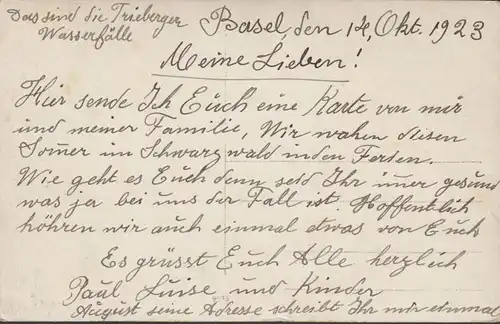 Das sind die Trieberger
Wasserfälle
Basel, den 14, Okt. 1923
Meine Lieben!
Hier sende Ich Euch eine Karte von mir
und meiner Familie, Wir wahen diesen
Somer im Schwarzwald in den Ferien.
Wie geht es Euch denn seid Ihr imer gesund
was ja bei uns der Fall ist. Hoffentlich
höhren wir auch einmal etwas von Euch
Es grüsst Euch Alle herzlich
Paul, Luise und Kinder
August seine Adresse schreibt Ihr mir einmal